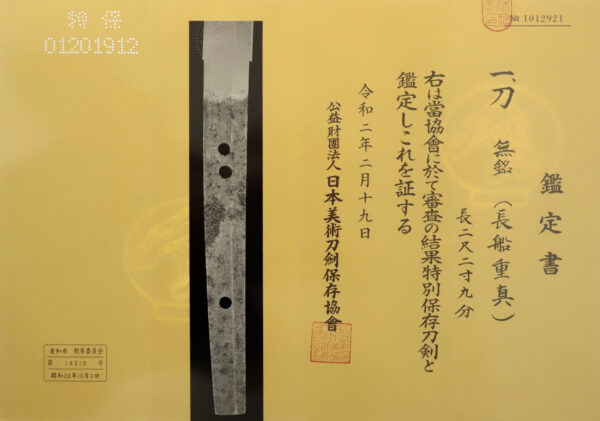 特保
01201912
№ 1012921
鑑定書
一、刀 無銘(長船重真)
長二尺二寸九分
右は當協會に於て審査の結果特別保存刀剣と
鑑定しこれを証する
令和二年二月十九日
公益財團法人 日本美術刀劍保存協會
愛知県 教育委員会
第 14510 号
昭和28年10月2日